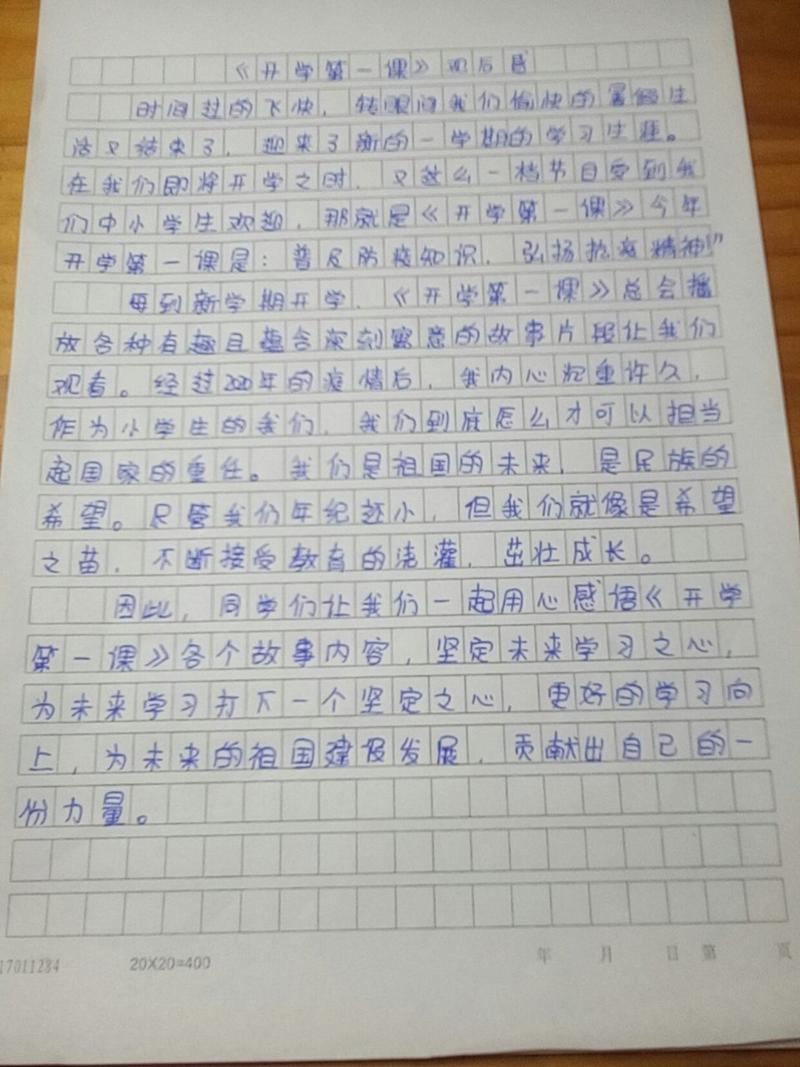 《开学第一课》观后感
时间过的飞快，转眼间我们愉快的暑假生
活又结束了，迎来了新的一学期的学习生涯。
在我们即将开学之时，又这么一档节目受到我
们中小学生欢迎，那就是《开学第一课》今年
开学第一课是：普及防疫知识，弘扬抗疫精神!”
每到新学期开学，《开学第一课》总会播
放各种有趣且蕴含深刻寓意的故事片段让我们
观看。经过2020年的疫情后，我内心沉重许久，
作为小学生的我们，我们到底怎么才可以担当
起国家的重任。我们是祖国的未来，是民族的
希望。尽管我们年纪还小，但我们就像是希望
之苗，不断接受教育的浇灌，茁壮成长。
因此，同学们让我们一起用心感悟《开学
第一课》各个故事内容，坚定未来学习之心，
为未来学习打下一个坚定之心，更好的学习向
上，为未来的祖国建设发展，贡献出自己的一
份力量。
17011284 20X20=400 年 月 日 第 页